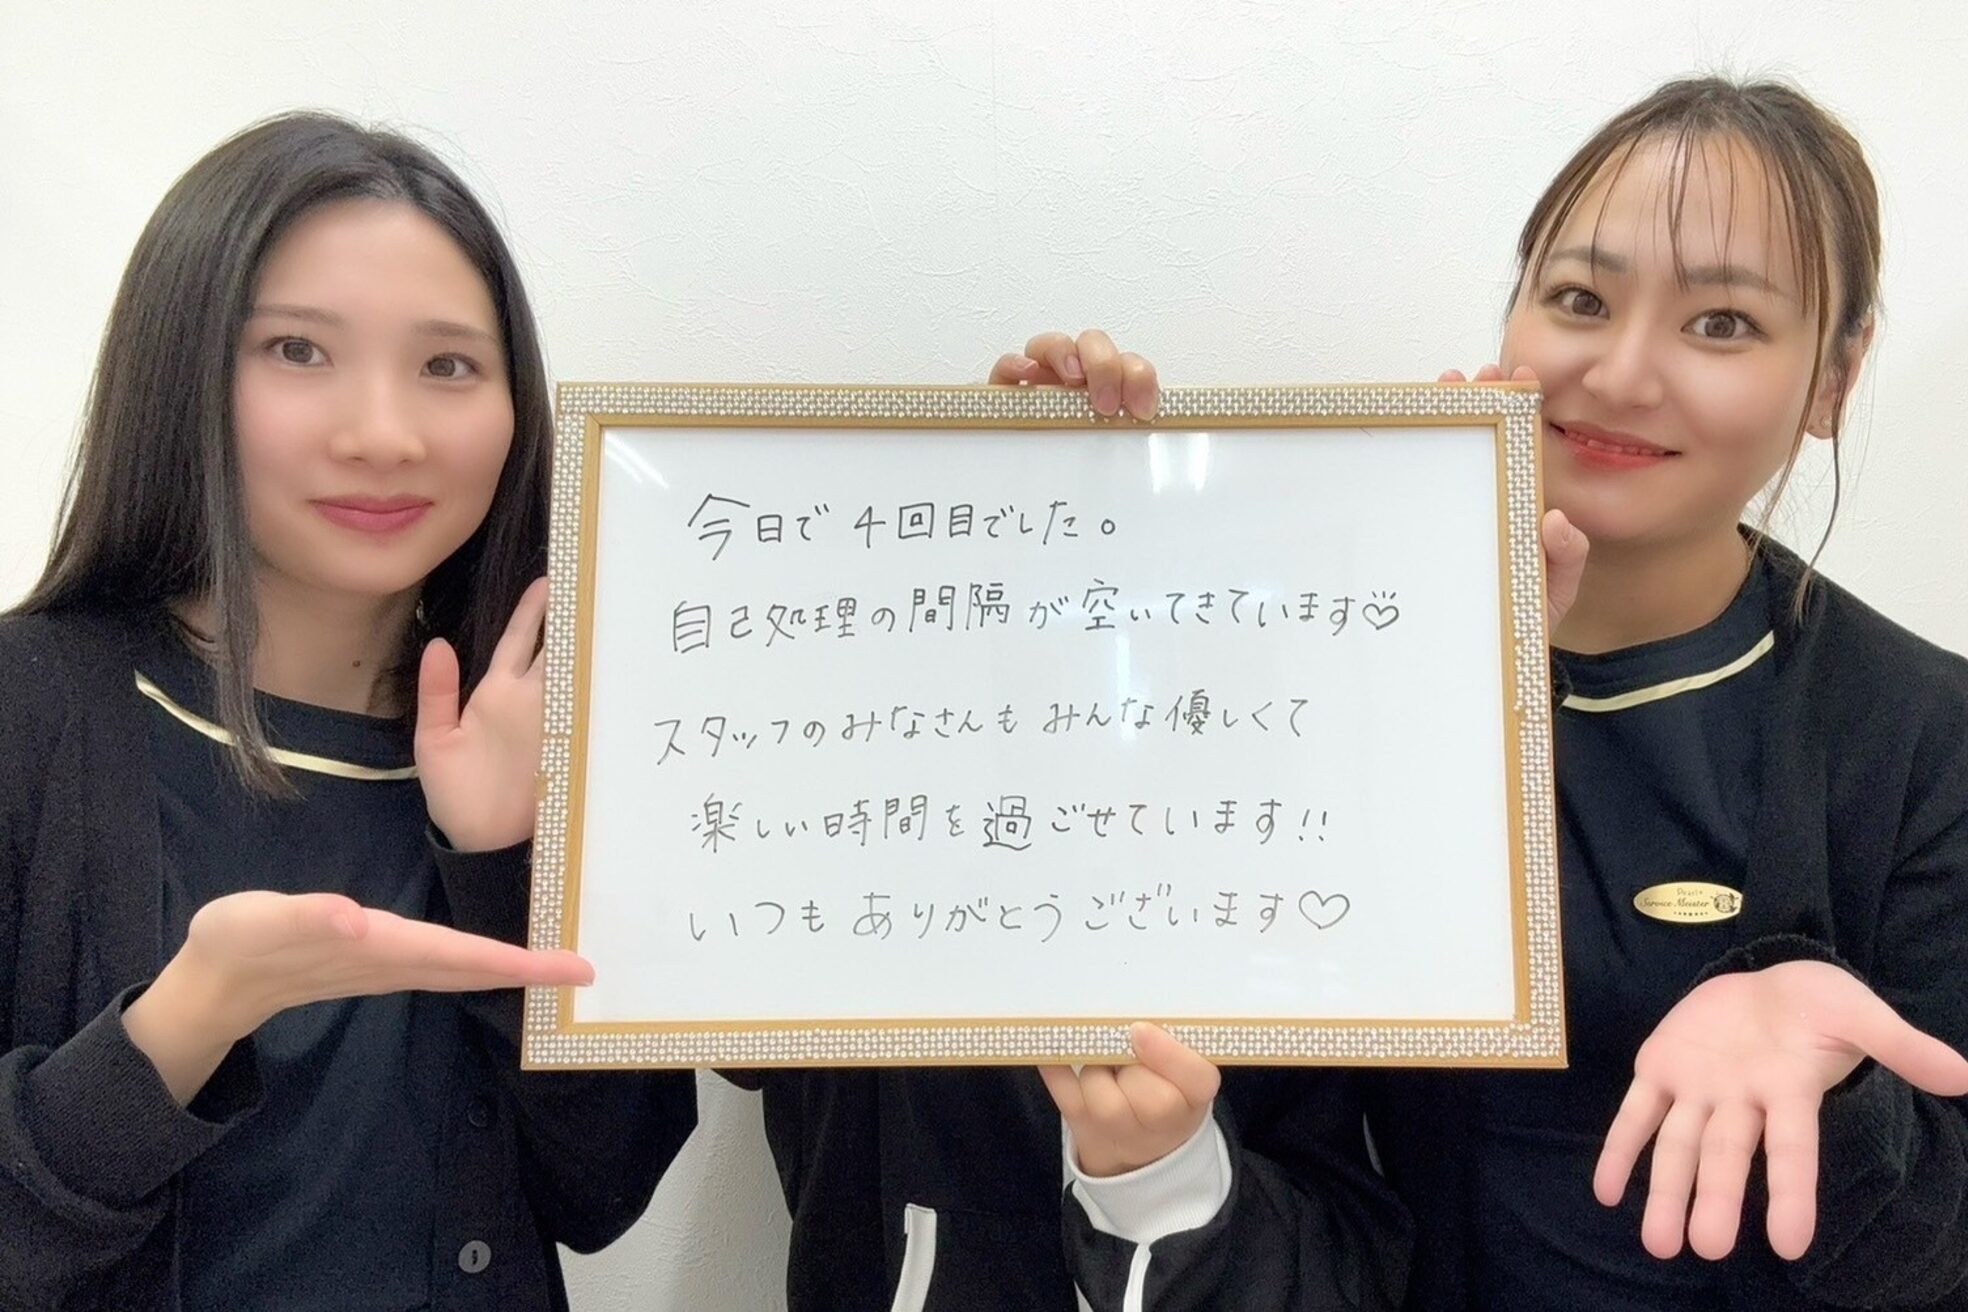 今日で4回目でした。
自己処理の間隔が空いてきています♡
スタッフのみなさんも みんな優しくて
楽しい時間を過ごせています!!
いつもありがとうございます♡
Service Meister